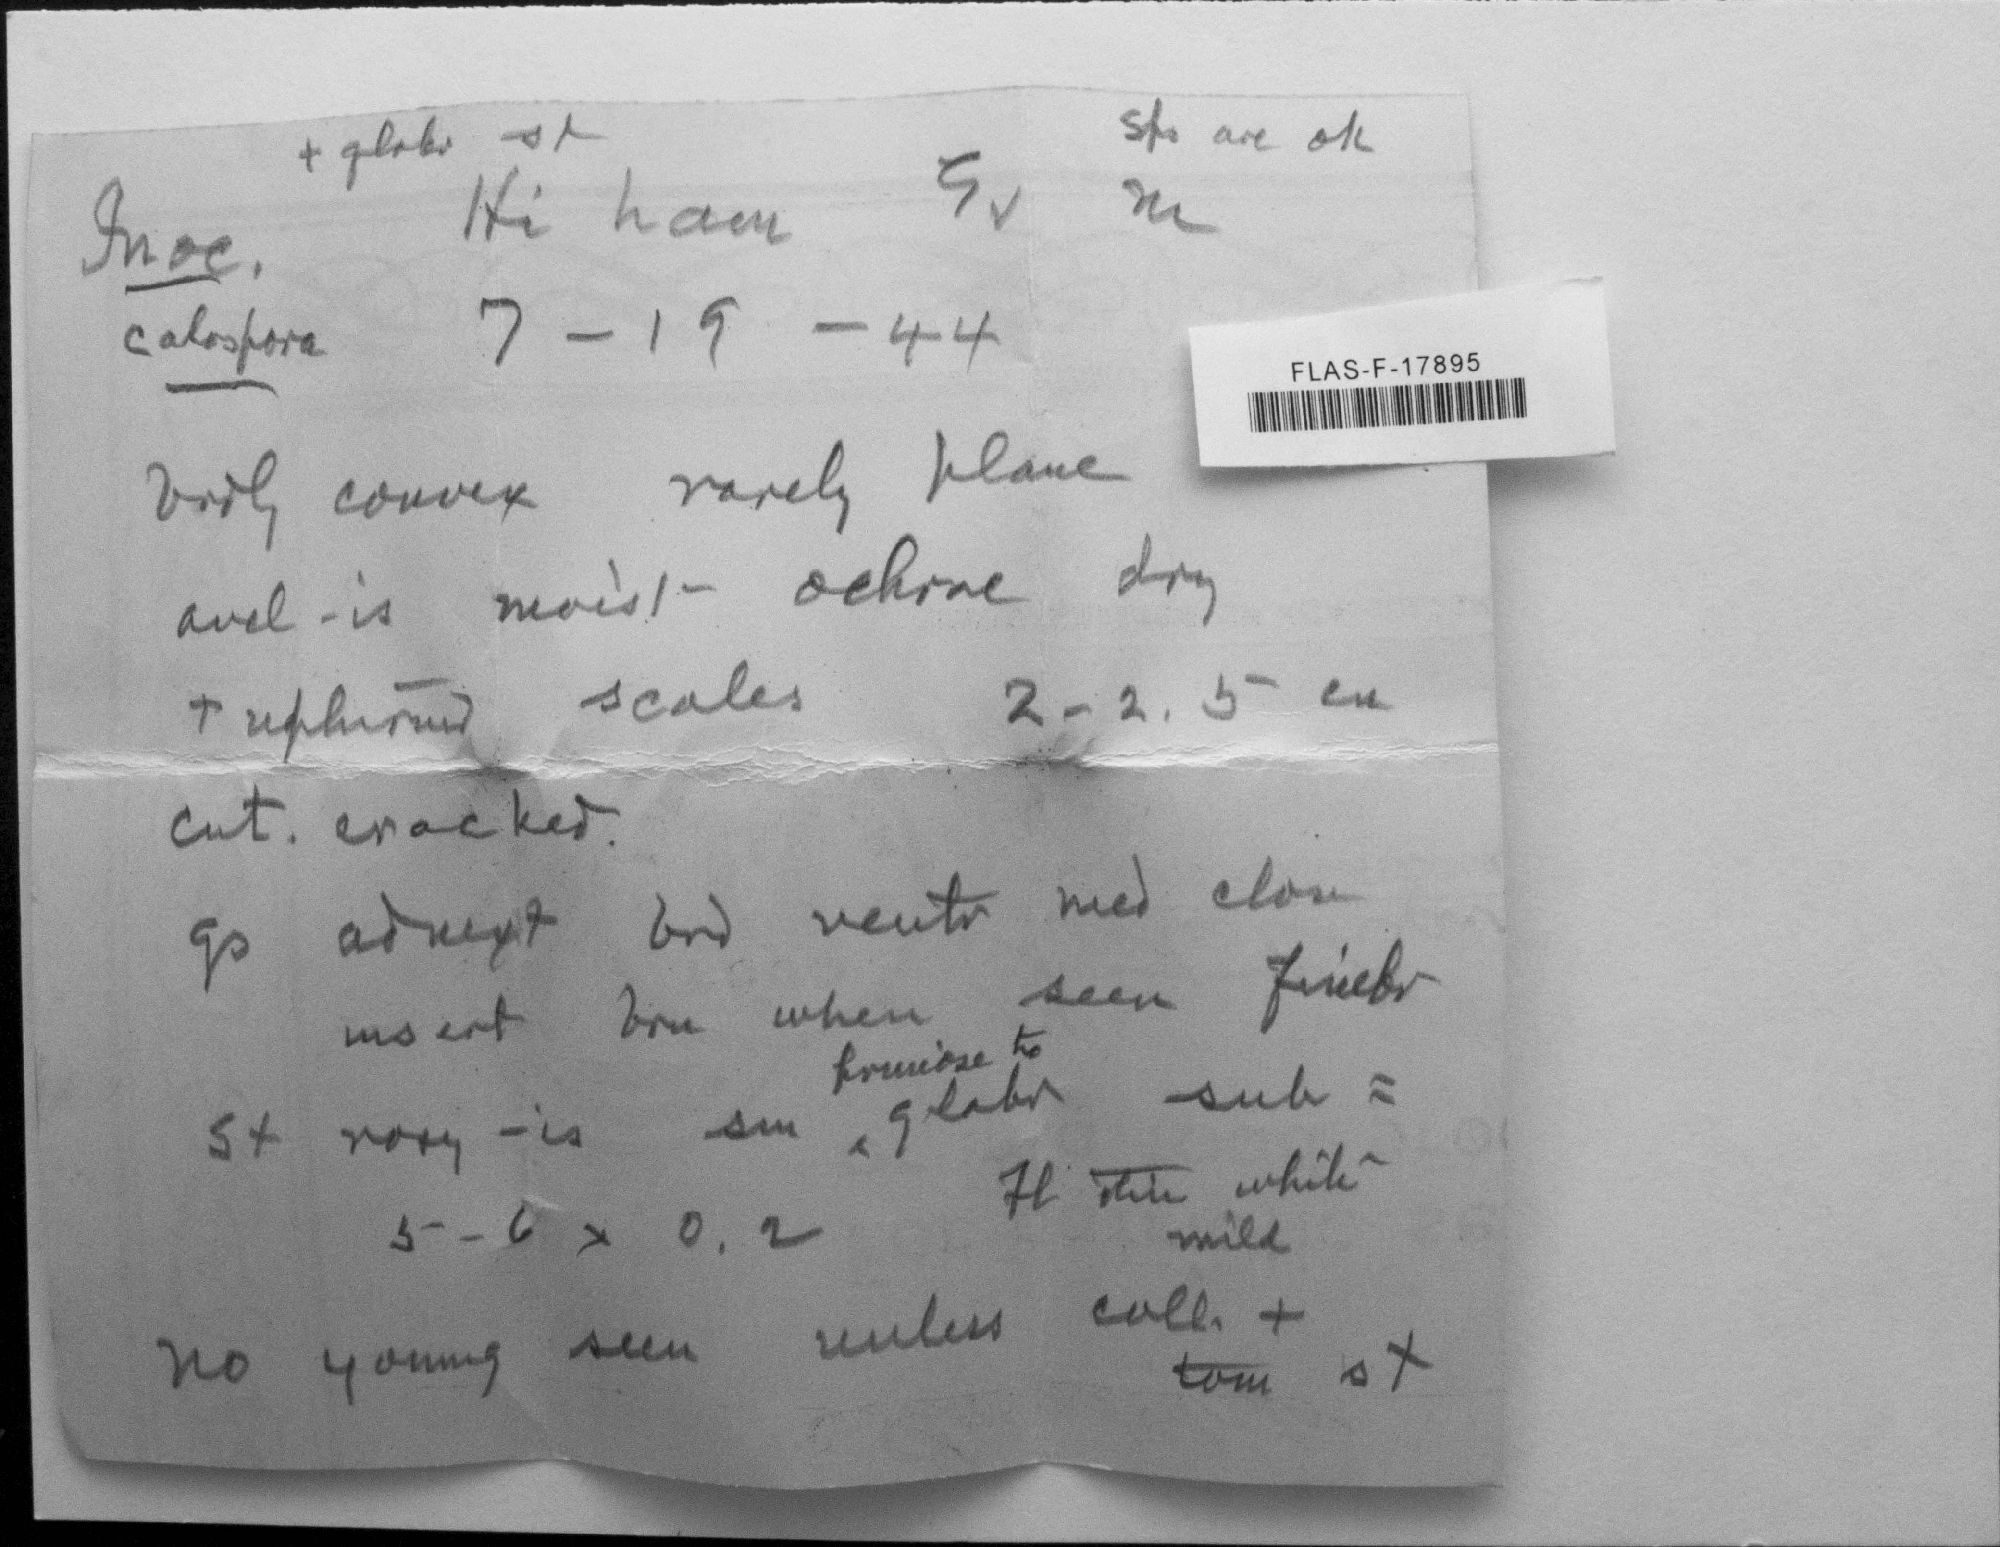 + glabr st
sps are ok
Inoc.
Hi ham Gv m
calospora
7-19-44
FLAS-F-17895
brdly convex rarely plane
avel-is moist ochrac dry
+ upturned scales 2-2.5 cm
cut. cracked.
gs adnext brd ventr med close
insert brn when seen fimbr
pruinose to
St rosy-is sm ‸ glabr sub =
5-6 x 0.2
Fl thin white
mild
no young seen unless coll. +
tom st